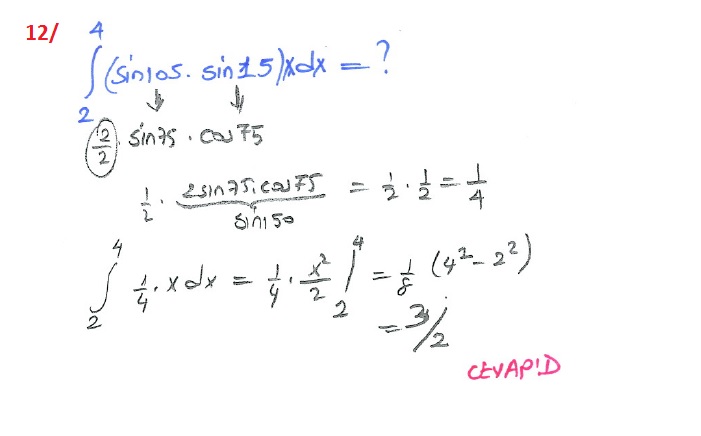 12/
∫₂⁴ (sin105 . sin15)xdx = ?
↓ ↓
2/2 . sin75 . cos75
1/2 . 2sin75.cos75 = 1/2 . 1/2 = 1/4
sin150
∫₂⁴ 1/4 . xdx = 1/4 . x²/2 |₂⁴ = 1/8 (4² - 2²)
= 3/2
CEVAP:D